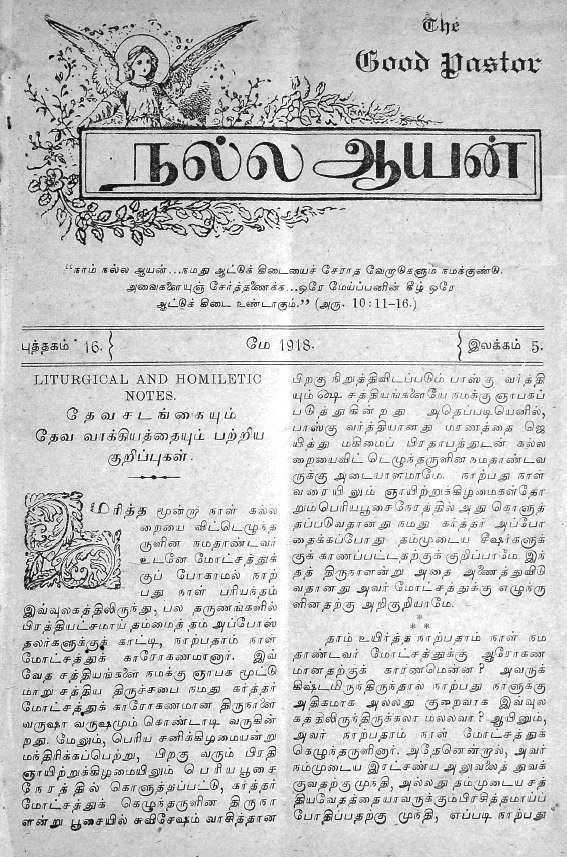 The
Good Pastor
நல்ல ஆயன்
"நாம் நல்ல ஆயன்...நமது ஆட்டுக் கிடையைச் சேராத வேறாடுகளும் நமக்குண்டு.
அவைகளையுஞ் சேர்த்தணைக்க...ஒரே மேய்ப்பனின் கீழ் ஒரே
ஆட்டுக் கிடை உண்டாகும்." (அரு. 10:11-16.)
புத்தகம் 16.
மே 1918.
இலக்கம் 5.
LITURGICAL AND HOMILETIC
NOTES.
தேவசடங்கையும்
தேவ வாக்கியத்தையும் பற்றிய
குறிப்புகள்.
மரித்த மூன்றா நாள் கல்ல
றையை விட்டெழுந்த
ருளின நமதாண்டவர்
உடனே மோட்சத்துக்
குப் போகாமல் நாற்
பது நாள் பரியந்தம்
இவ்வுலகத்திலிருந்து, பல தருணங்களில்
பிரத்தியட்சமாய் தம்மைத் தம் அப்போஸ்
தலர்களுக்குக் காட்டி, நாற்பதாம் நாள்
மோட்சத்துக் காரோகணமானார். இவ்
வேத சத்தியங்களை நமக்கு ஞாபக மூட்டு
மாறு சத்திய திருச்சபை நமது கர்த்தர்
மோட்சத்துக் காரோகணமான திருநாளை
வருஷா வருஷமும் கொண்டாடி வருகின்
றது. மேலும், பெரிய சனிக்கிழமையன்று
மந்திரிக்கப்பெற்று, பிறகு வரும் பிரதி
ஞாயிற்றுக்கிழமையிலும் பெரியபூசை
நேரத்தில் கொளுத்தப்பட்டு, கர்த்தர்
மோட்சத்துக் கெழுந்தருளின திருநா
ளன்று பூசையில் சுவிசேஷம் வாசித்தான
பிறகு நிறுத்திவிடப்படும் பாஸ்கு வர்த்தி
யும் சத்தியங்களையே நமக்கு ஞாபகப்
படுத்துகின்றது அதெப்படியெனில்,
பாஸ்கு வர்த்தியானது மரணத்தை ஜெ
யித்து மகிமைப் பிரதாபத்துடன் கல்ல
றையைவிட் டெழுந்தருளின நமதாண்டவ
ருக்கு அடையாளமாமே. நாற்பது நாள்
வரையிலும் ஞாயிற்றுக்கிழமைகள்தோ
றும்பெரியபூசைநேரத்தில் அது கொளுத்
தப்படுவதானது நமது கர்த்தர் அப்போ
தைக்கப்போது தம்முடைய சீஷர்களுக்
குக் காணப்பட்டதற்குக் குறிப்பாமே. இந்
தத் திருநாளன்று அதை அணைத்துவிடு
வதானது அவர் மோட்சத்துக்கு எழுந்தரு
ளினதற்கு அறிகுறியாமே.
* *
*
தாம் உயிர்த்த நாற்பதாம் நாள் நம
தாண்டவர் மோட்சத்துக்கு ஆரோகண
மானதற்குக் காரணமென்ன? அவருக்
கிஷ்டமிருந்திருந்தால் நாற்பது நாளுக்கு
அதிகமாக அல்லது குறைவாக இவ்வுல
கத்திலிருந்திருக்கலா மல்லவா? ஆயினும்,
அவர் நாற்பதாம் நாள் மோட்சத்துக்
கெழுந்தருளினார். அதேனென்றால், அவர்
நம்முடைய இரட்சண்ய அலுவலைத் துவக்
குவதற்குமுந்தி, அல்லது தம்முடைய சத்
தியவேதத்தையாவருக்கும்பிரசித்தமாய்ப்
போதிப்பதற்கு முந்தி, எப்படி நாற்பது